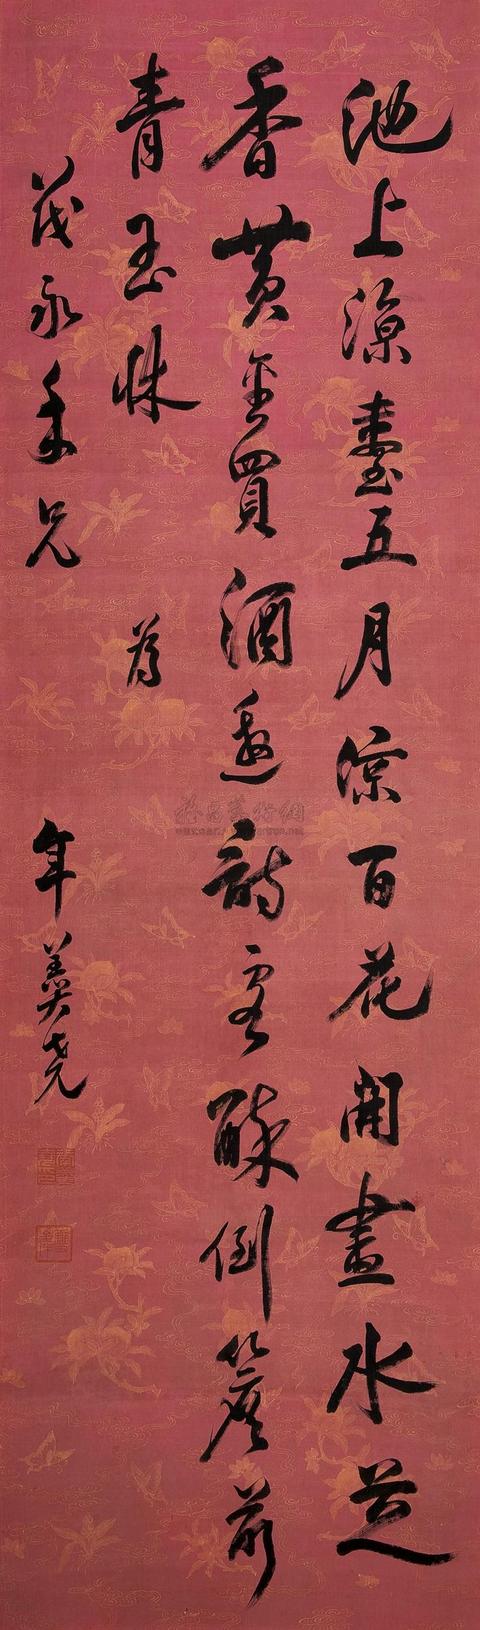 池上涼臺五月涼百花開盡水芝
香黃金買酒邀詩客醉倒簷前
青玉牀 為
茂永年兄
年羹堯